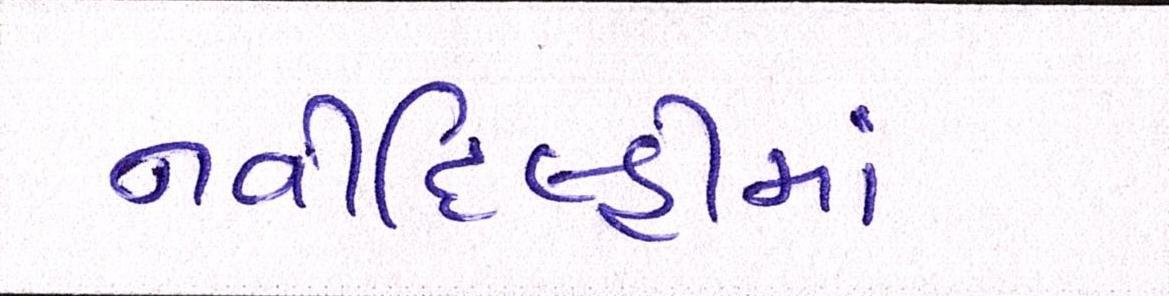 નવીદિલ્હીમાં